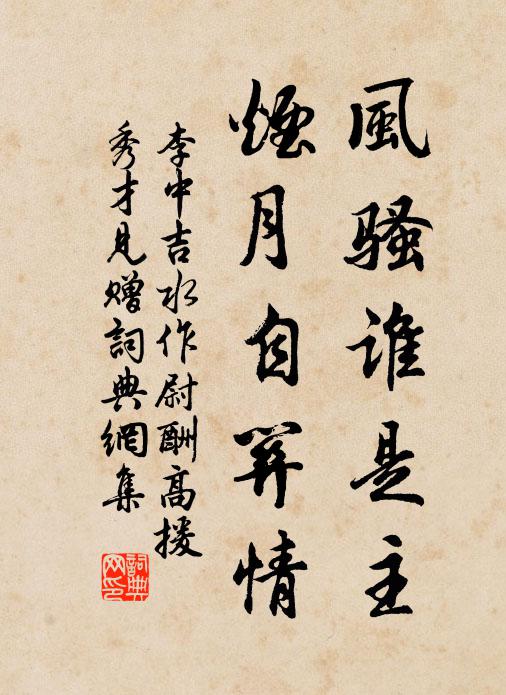 風騷誰是主
煙月自關情
李中吉水作尉酬高援
秀才見贈詞典網集
詞典
网印